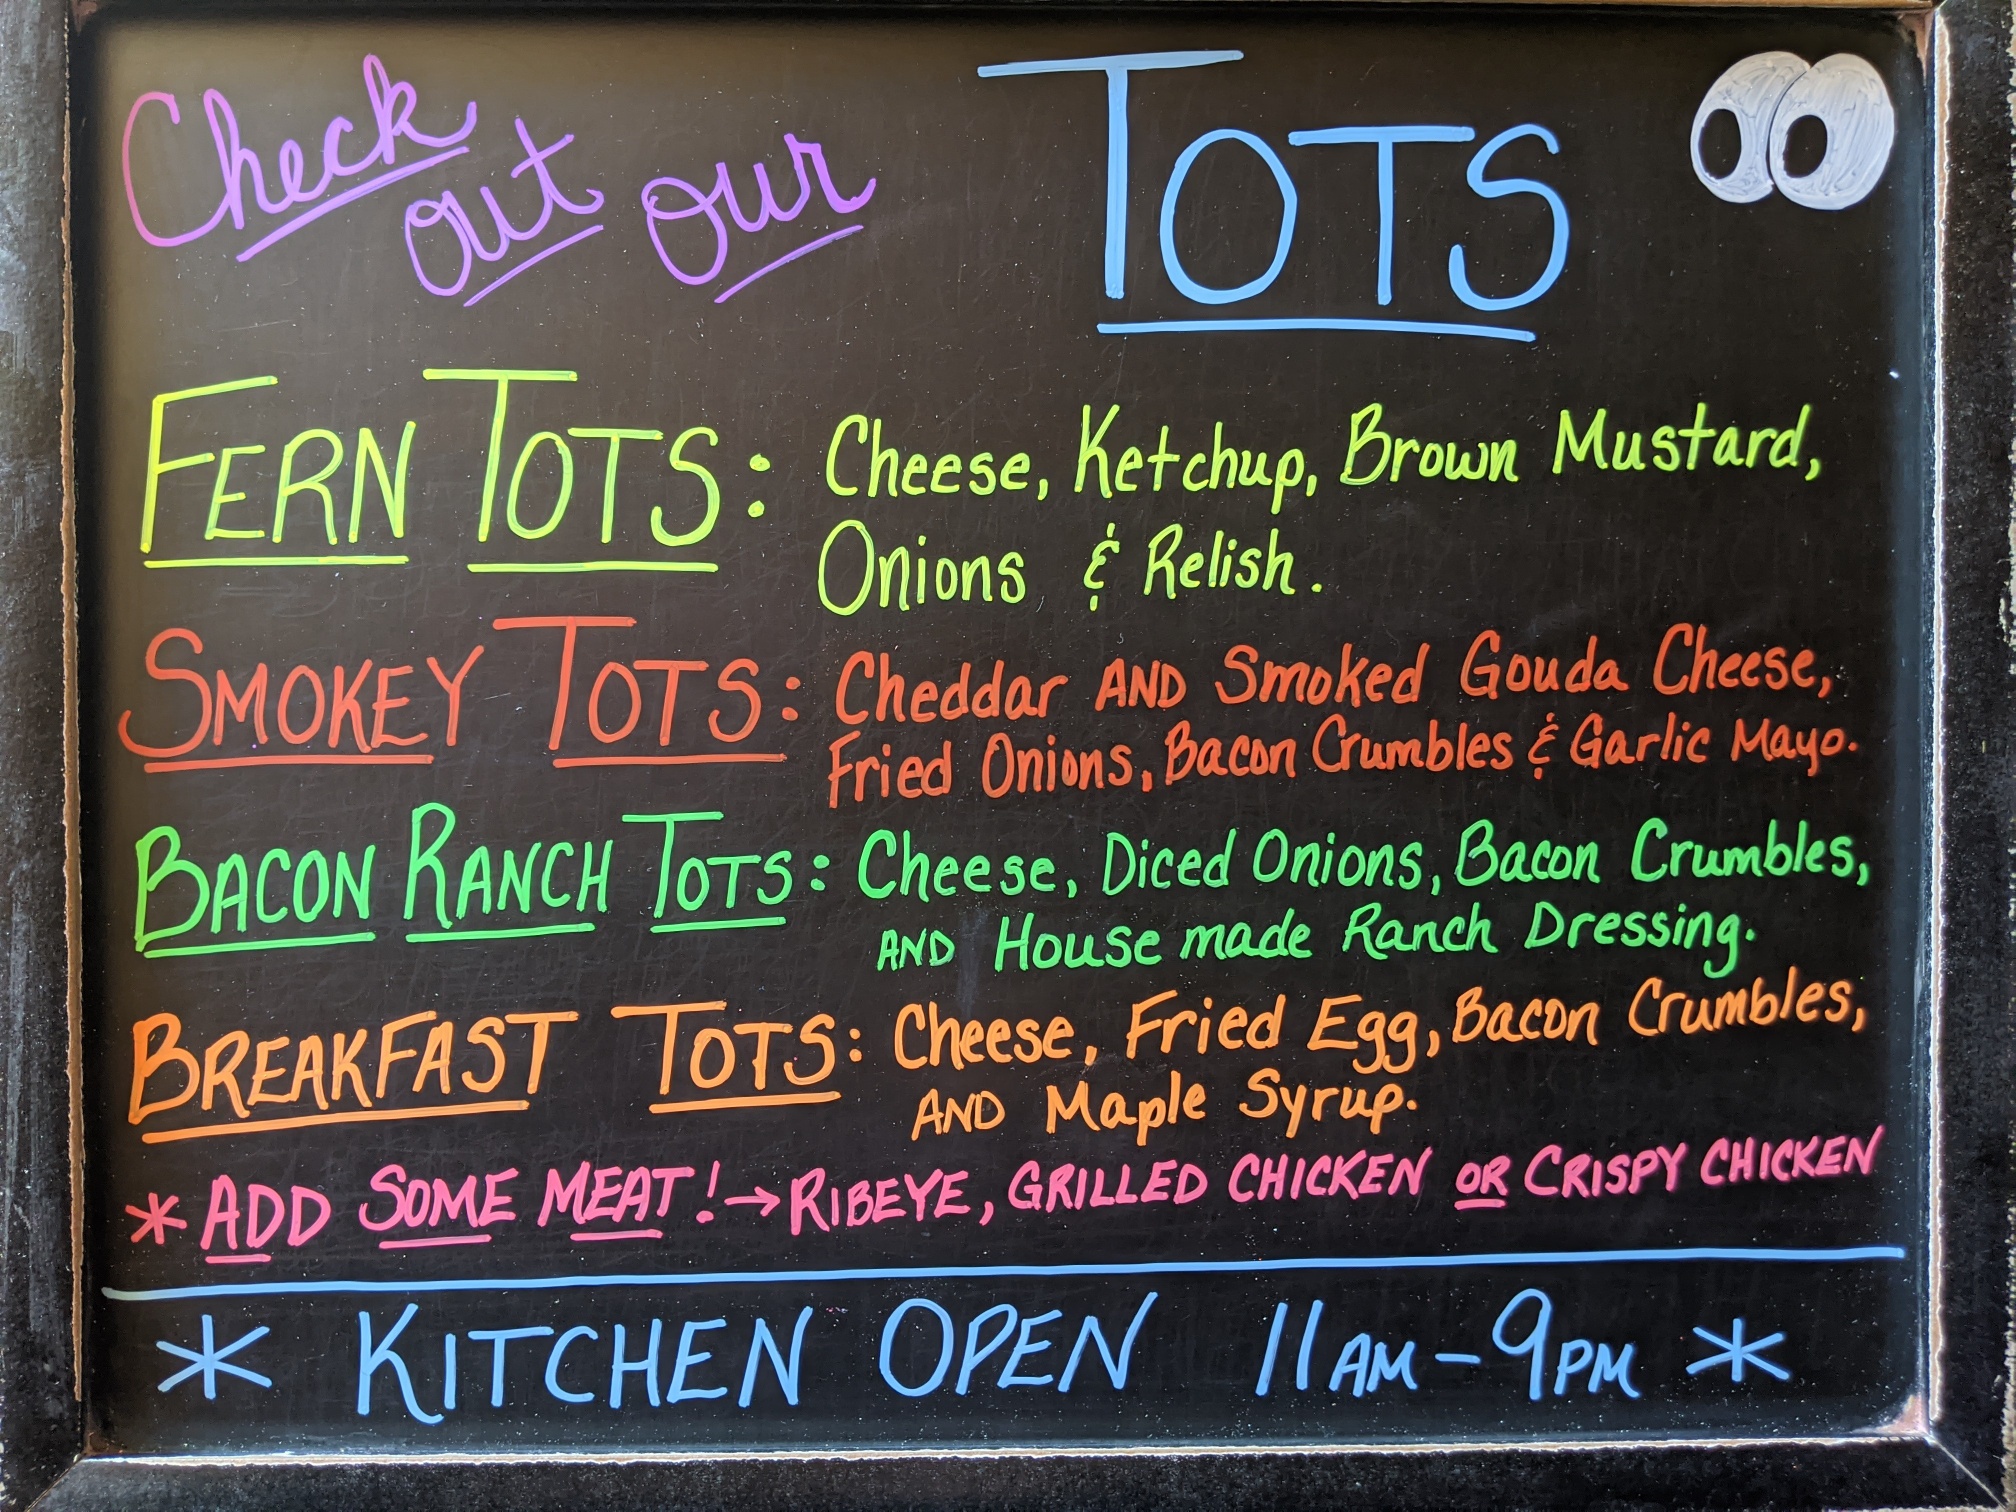 Check out our TOTS
FERN TOTS: Cheese, Ketchup, Brown Mustard,
Onions & Relish.
SMOKEY TOTS: Cheddar AND Smoked Gouda Cheese,
Fried Onions, Bacon Crumbles & Garlic Mayo.
BACON RANCH TOTS: Cheese, Diced Onions, Bacon Crumbles,
AND House made Ranch Dressing.
BREAKFAST TOTS: Cheese, Fried Egg, Bacon Crumbles,
AND Maple Syrup.
* ADD SOME MEAT! → RIBEYE, GRILLED CHICKEN OR CRISPY CHICKEN
* KITCHEN OPEN 11AM - 9PM *